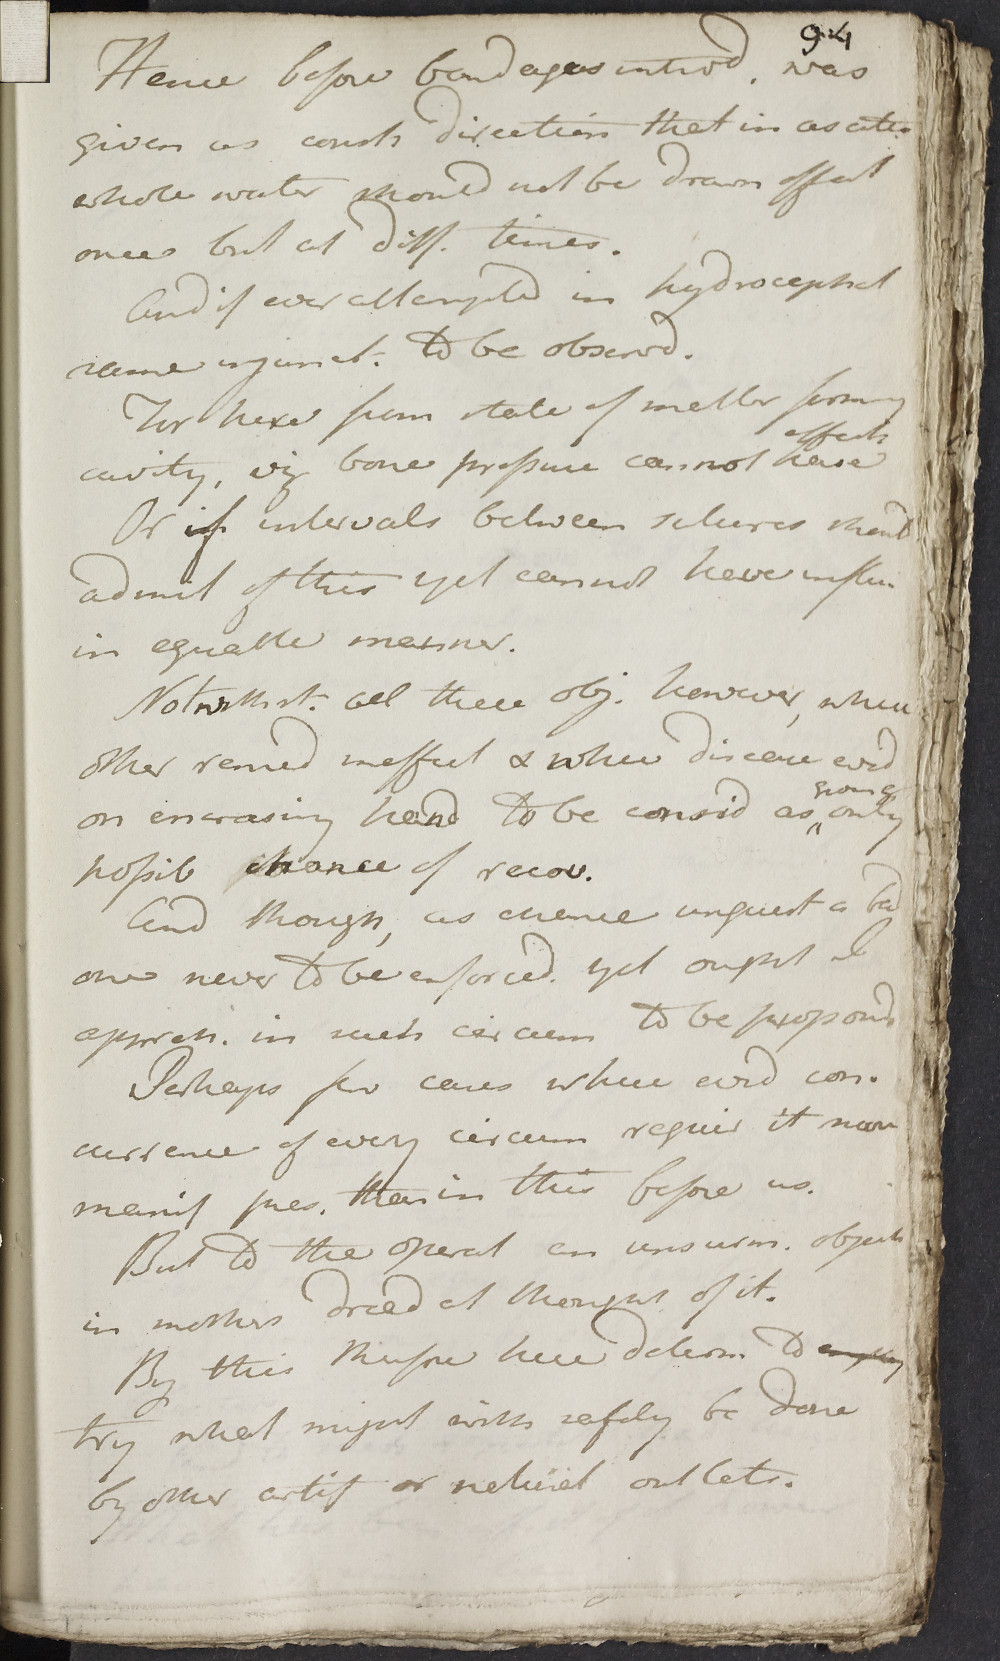 94
Hence before bandages introd. was
given as const direction that in ascites
whole water should not be drawn off at
once but at diff. times.
And if ever attempted in hydrocephal
same injunct. to be observd.
For here from state of matter forming
cavity, viz bone pressure cannot have effects
Or if intervals between sutures should
admit of this yet cannot have influ
in equable manner.
Notwithst. all these obj. however, when
other remed ineffect & when disease evid
on encreasing hand to be consid as ^ giving only
possib chance of recov.
And though, as chance unquest a bad
one never to be enforced. yet ought I
appreh. in such circum to be propound
Perhaps few cases where evid con-
currence of every circum requir it more
manif pres. than in this before us.
But to the operat an unsurm. object
in mothers dread at thought of it.
By this therefore here determ. to employ
try what might with safety be done
by other artif or natural outlets.